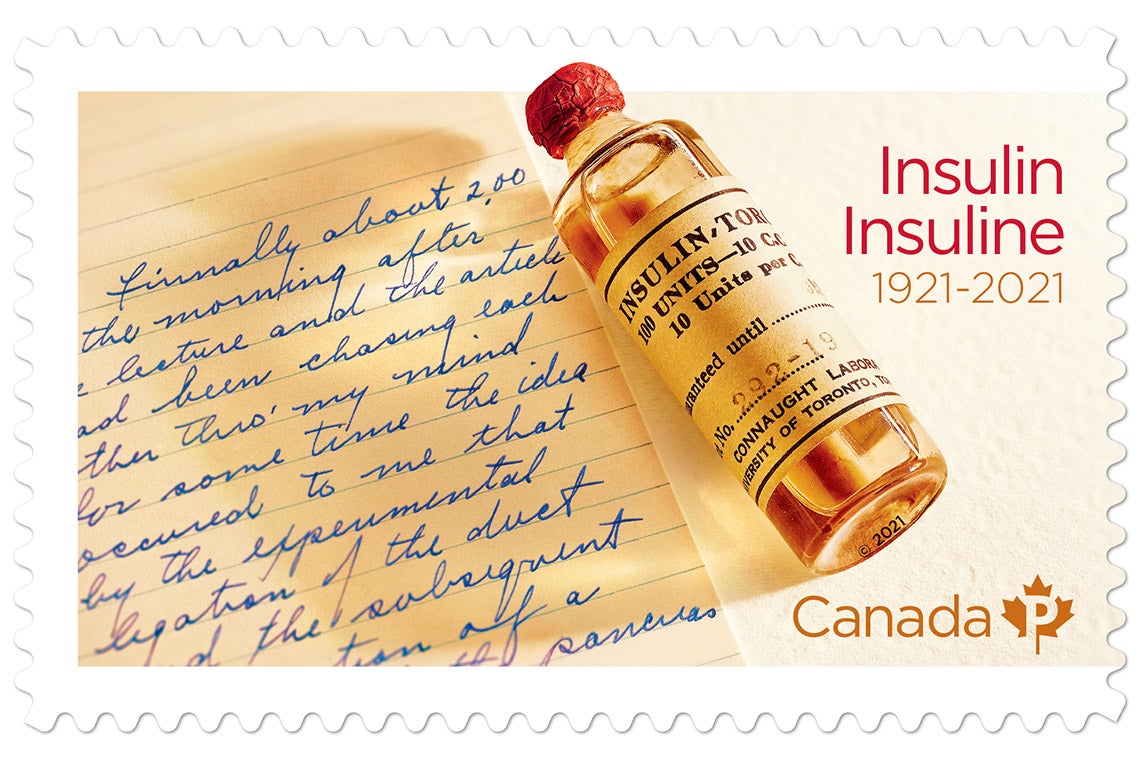 Finnally about 2,00
the morning after
lecture and the article
ad been chasing each
ther thro' my mind
for some time the idea
occured to me that
by the experimental
ligation of the duct
d the subsequent
tion of a
pancreas
INSULIN, TORO
100 UNITS—10 C.C
10 Units per C
aranteed until
No. 292-19
CONNAUGHT LABORA
VERSITY OF TORONTO, TO
© 2021
Insulin
Insuline
1921-2021
Canada P